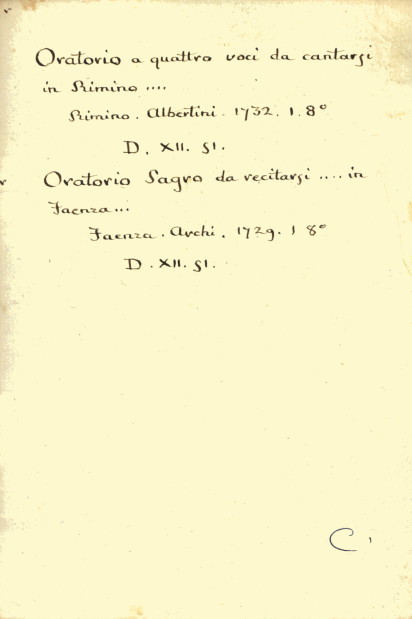 Oratorio a quattro voci da cantarsi
in Rimino ....
Rimino. Albertini. 1732. 1. 8°
D. XII. 51.
Oratorio Sagro da recitarsi .... in
Faenza...
Faenza. Archi. 1729. 1 8°
D. XII. 51.
C